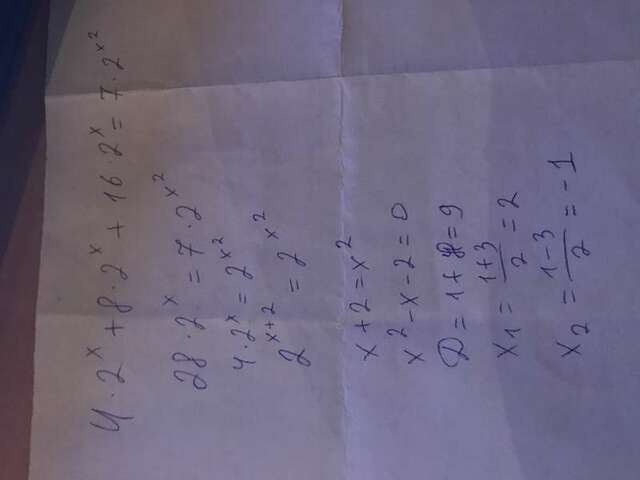 4 · 2^x + 8 · 2^x + 16 · 2^x = 7 · 2^x²
28 · 2^x = 7 · 2^x²
4 · 2^x = 2^x²
2^x+2 = 2^x²
x + 2 = x²
x² - x - 2 = 0
D = 1 + = 9
x₁ = (1+3)/2 = 2
x₂ = (1-3)/2 = -1